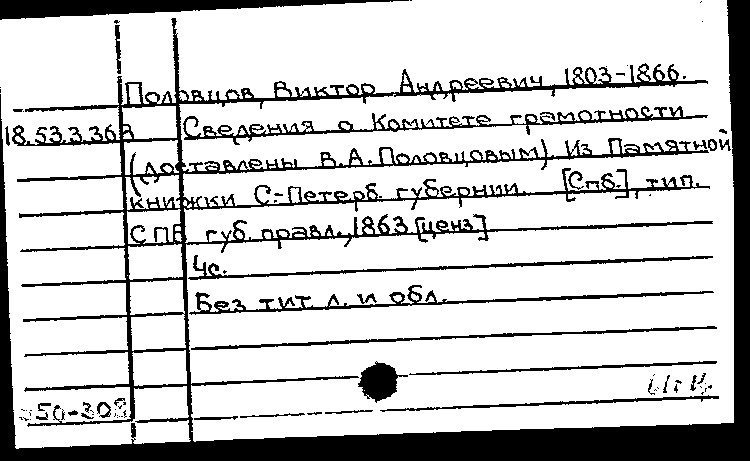 Половцов, Виктор Андреевич, 1803-1866.
18.53.3.36а Сведения о Комитете грамотности
(доставлены В.А.Половцовым). Из Памятной
книжки С.-Петерб. губернии. [Спб.], тип.
СПБ губ. правл., 1863 [ценз]
4с.
Без тит л. и обл.
50-308